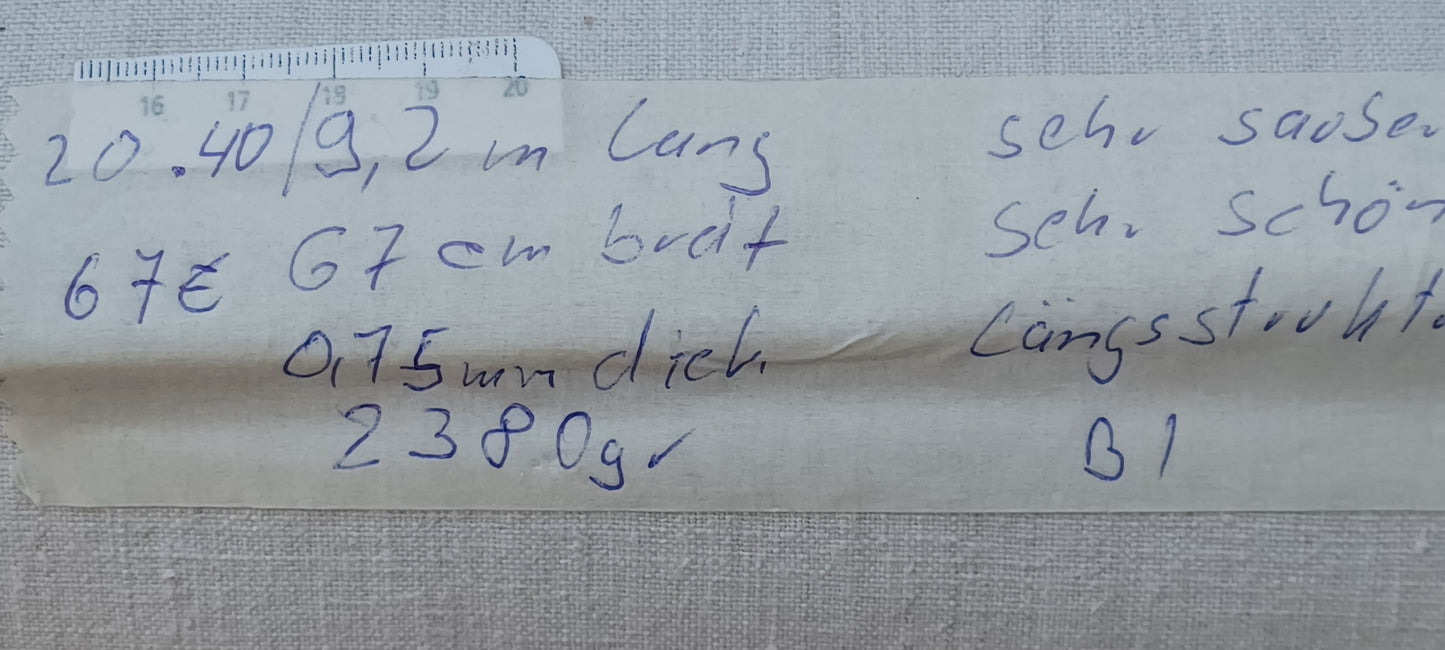 16 17 18 19 20
20.40/9,2 m lang
67€ 67 cm breit
0,75 mm dick
2380 gr
sehr sauber
sehr schön
Längsstrukt
B1